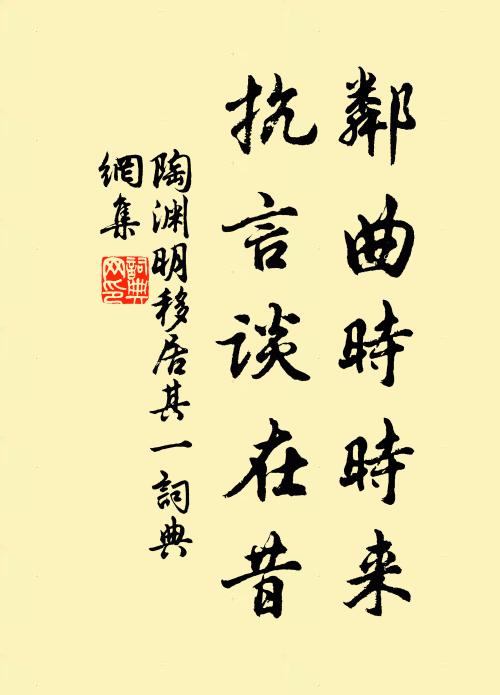 鄰曲時時来
抗言談在昔
陶渊明移居其一詞典
網集
詞典网印